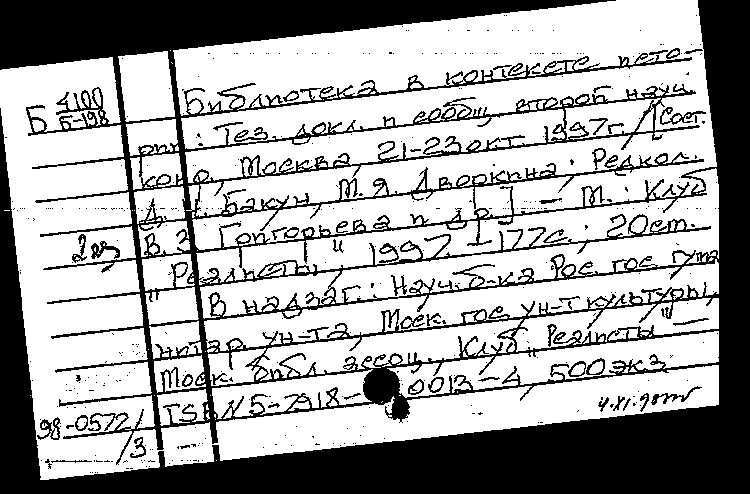 Б 4100/Б-198
Библиотека в контексте исто-
рии: Тез. докл. и сообщ. второй науч.
конф., Москва, 21-23 окт. 1997г. / [Сост.
Д. Н. Бакун, М. Я. Дворкина; Редкол.
В. З. Григорьева и др.]. — М.: Клуб
2 экз
"Реалисты", 1997. — 177с.; 20см.
В надзаг.: Науч. б-ка Рос. гос. гума
нитар. ун-та, Моск. гос. ун-т культуры,
Моск. библ. ассоц., Клуб "Реалисты" —
ISBN 5-7918- 0013-4, 500 экз
98-0572/
3
4.XI.98